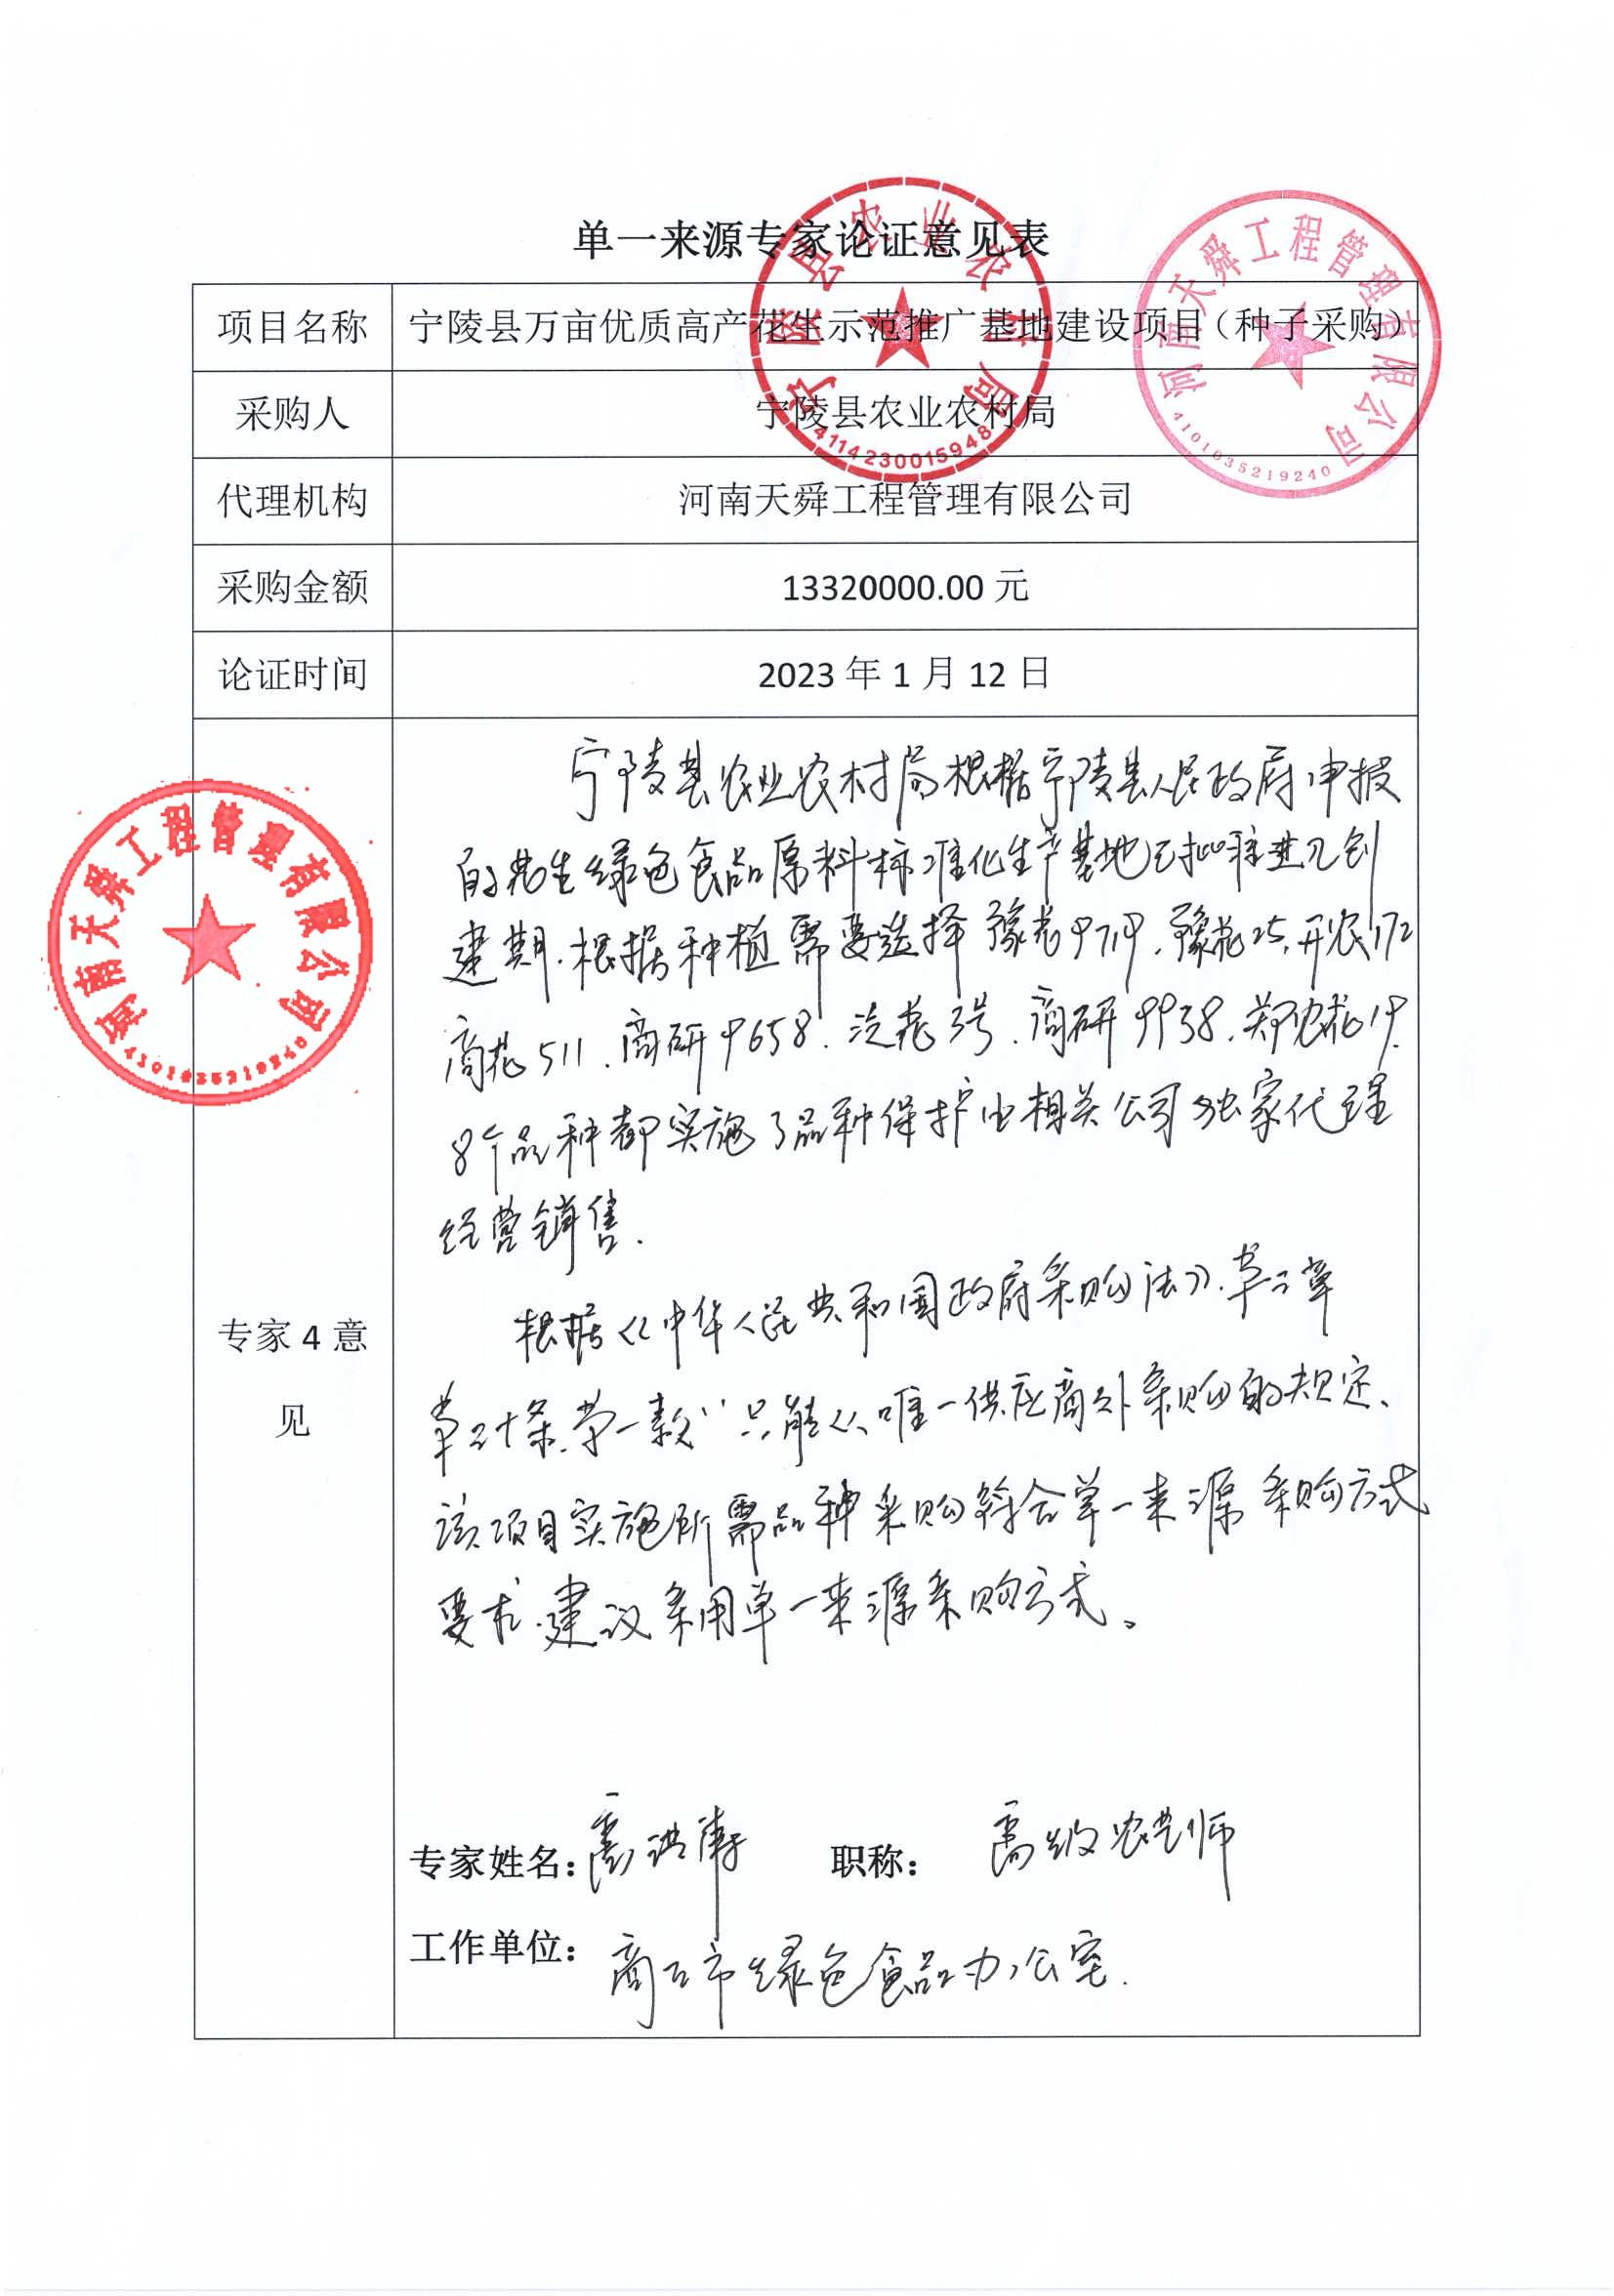 单一来源专家论证意见表
项目名称
宁陵县万亩优质高产花生示范推广基地建设项目（种子采购）
采购人
宁陵县农业农村局
代理机构
河南天舜工程管理有限公司
采购金额
13320000.00 元
论证时间
2023 年 1 月 12 日
专家 4 意
见
宁陵县农业农村局根据宁陵县人民政府申报
的花生绿色食品原料标准化生产基地已批准进入创
建期.根据种植需要选择豫花9719.豫花25.开农172
商花511.商研9658.汴花3号.商研9938.郑农花19.
8个品种都实施了品种保护由相关公司独家代理
经营销售.
根据《中华人民共和国政府采购法》.第三章
第三十条.第一款“只能从唯一供应商处采购的规定、
该项目实施所需品种采购符合单一来源采购方式
要求.建议采用单一来源采购方式。
专家姓名：
职称： 高级农艺师
工作单位： 商丘市绿色食品办公室.
宁陵县农业农村局
4114230015948
河南天舜工程管理有限公司
4101035219240
河南天舜工程管理有限公司
4101035219240